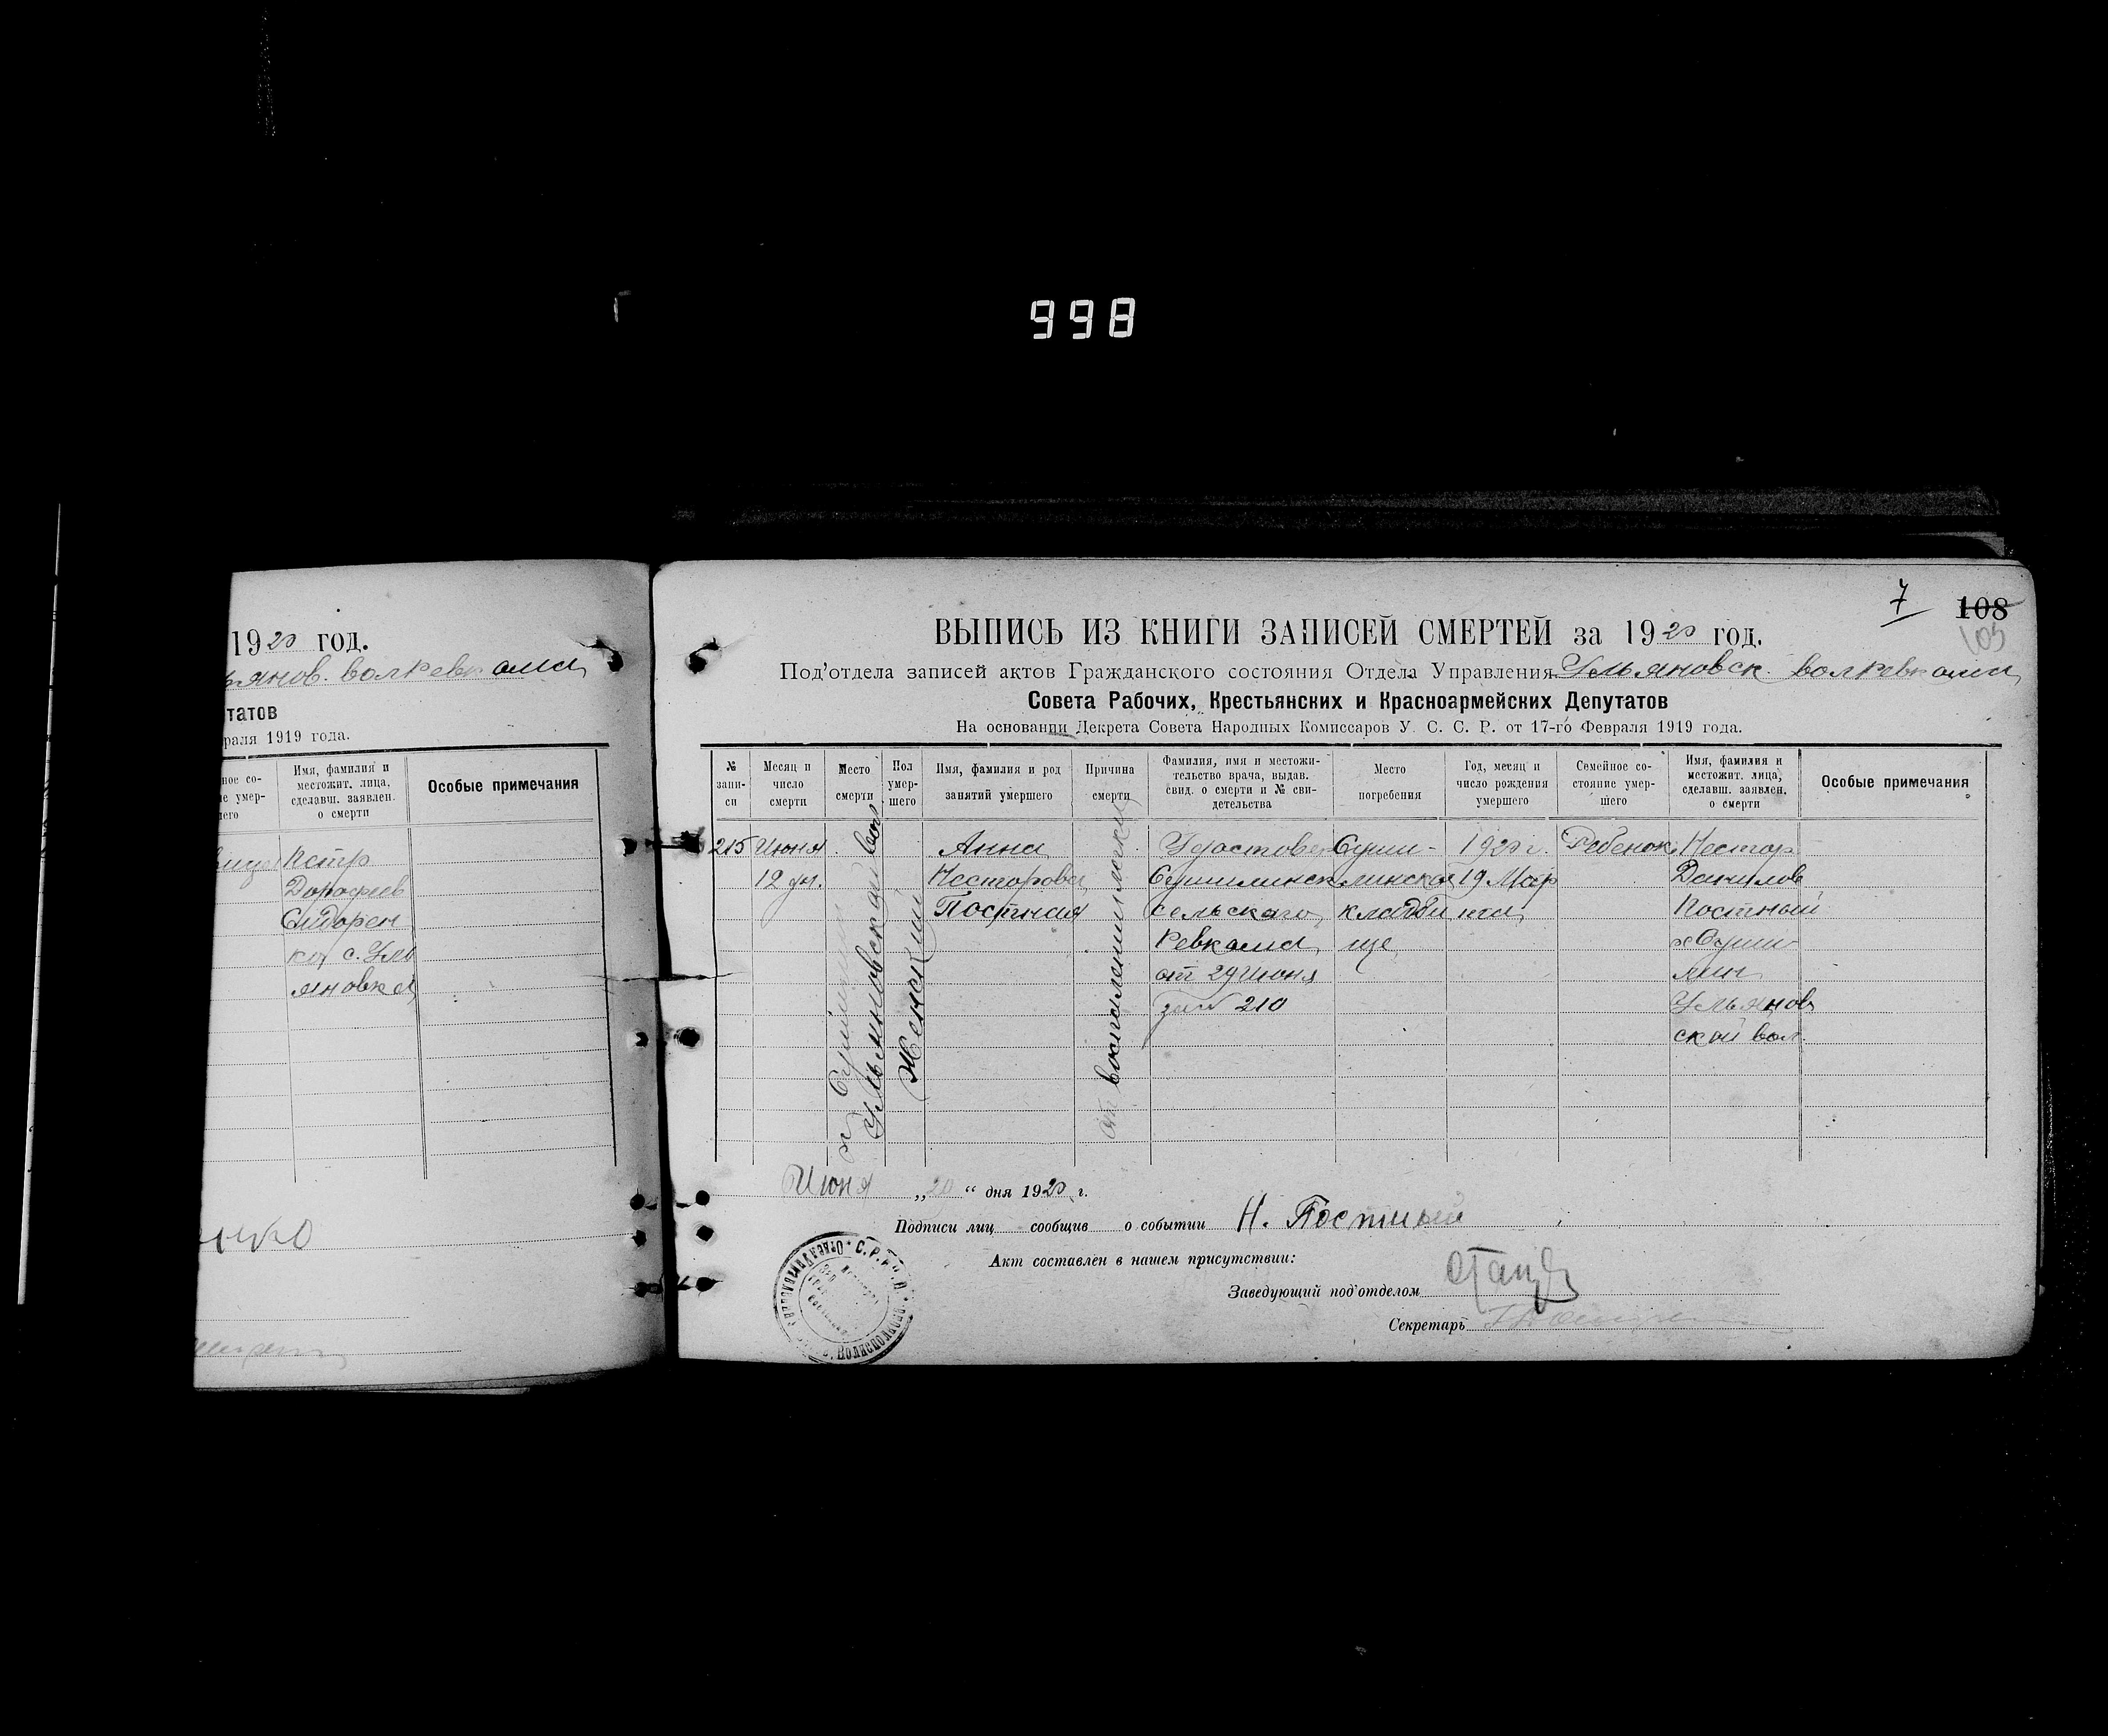 998
1920 год.
ьянов. волревкома
татов
раля 1919 года.
ное со-
е умер-
его
Имя, фамилия и
местожит. лица,
сделавш. заявлен.
о смерти
Особые примечания
Петр
Дорофеев
Сидорен
ко с. Уль
яновка
енко
7
108
105
ВЫПИСЬ ИЗ КНИГИ ЗАПИСЕЙ СМЕРТЕЙ за 1920 год.
Под'отдела записей актов Гражданского состояния Отдела Управления Ульяновск. волревкома
Совета Рабочих, Крестьянских и Красноармейских Депутатов
На основании Декрета Совета Народных Комиссаров У. С. С. Р. от 17-го Февраля 1919 года.
№
запи-
си
Месяц и
число
смерти
Место
смерти
Пол
умер-
шего
Имя, фамилия и род
занятий умершего
Причина
смерти
Фамилия, имя и местожи-
тельство врача, выдав.
свид. о смерти и № сви-
детельства
Место
погребения
Год, месяц и
число рождения
умершего
Семейное со-
стояние умер-
шего
Имя, фамилия и
местожит. лица,
сделавш. заявлен.
о смерти
Особые примечания
215
Июня
12 дн.
Ульяновской вол
Женский
Анна
Несторова
Постная
от воспаления легких
Удостовер
Сушилинск
сельского
Ревкома
от 29 Июня
за № 210
Суши-
линское
кладби
ще
1920 г.
19 Мар
та
Ребенок
Нестор
Данилов
Постный
х Суши
лин
Ульянов
ской вол.
Июня „20“ дня 1920 г.
Подписи лиц сообщив о событии Н. Постный
Акт составлен в нашем присутствии:
Заведующий под'отделом
Секретарь